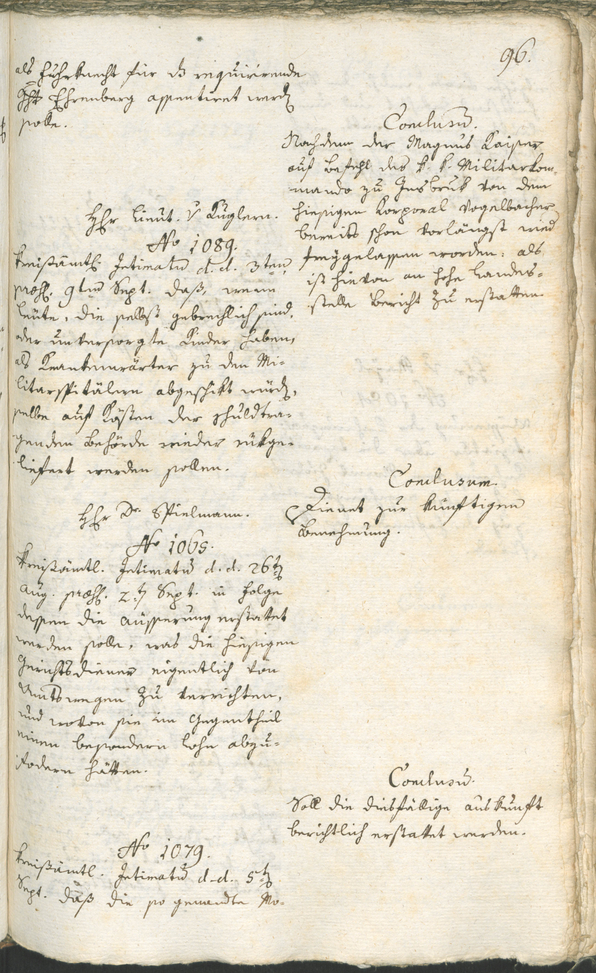 96.
als Fuhrknecht für d requirirende
Ehrenberg assentiret werd
solle.
Conclusū.
Nachdem der Magnus Kaiser
auf Befehl des k. k. Militarkom-
mando zu Insbruk von dem
hiesigen Korporal Vogelbacher
bereits schon vorlängst
freygelassen worden, als
ist hievon an hohe Landes-
stelle Bericht zu erstatten.
Hr Lieut. v Kuglern.
No 1089.
Kreisämtl. Intimatū d. d. 3ten
præs. 9ten Sept. daß, wenn
Leüte, die selbst gebrechlich sind,
oder unversorgte Kinder haben,
als Krankenwärter zu den Mi-
litarspitälern abgeschikt würd,
selbe auf Kösten der schuldtra-
genden Behörde wieder rükge-
liefert werden sollen.
Conclusum
Dienet zur künftigen
Benehmung.
Hr Dr Spielmann.
No 1065.
Kreisämtl. Intimatū d. d. 26t
Aug. præs. 2t Sept. in Folge
dessen die Äusserung erstattet
werden solle, was die hiesigen
Gerichtsdiener eigentlich von
Amtswegen zu verrichten,
und wovon sie im Gegentheil
einen besondern Lohn abzu-
fodern hätten.
Conclusū.
Soll die diesfällige Auskunft
berichtlich erstattet werden.
No 1079.
Kreisämtl. Intimatū d. d. 5t
Sept. daß die so genannte Mo-